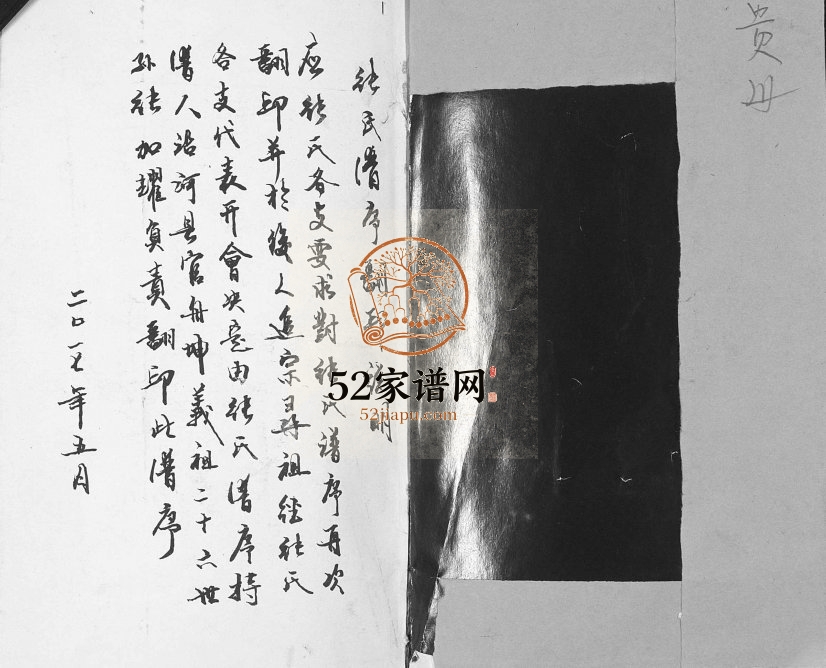 贵 册
张氏谱序翻印说明
应张氏各支要求對张氏谱序再次
翻印并於後人追宗寻祖经张氏
各支代表开會决定由张氏谱序持
谱人沿河县官舟坤義祖二十六世
孙张加耀负责翻印此谱序
二〇一七年五月
52家谱网
52jiapu.com